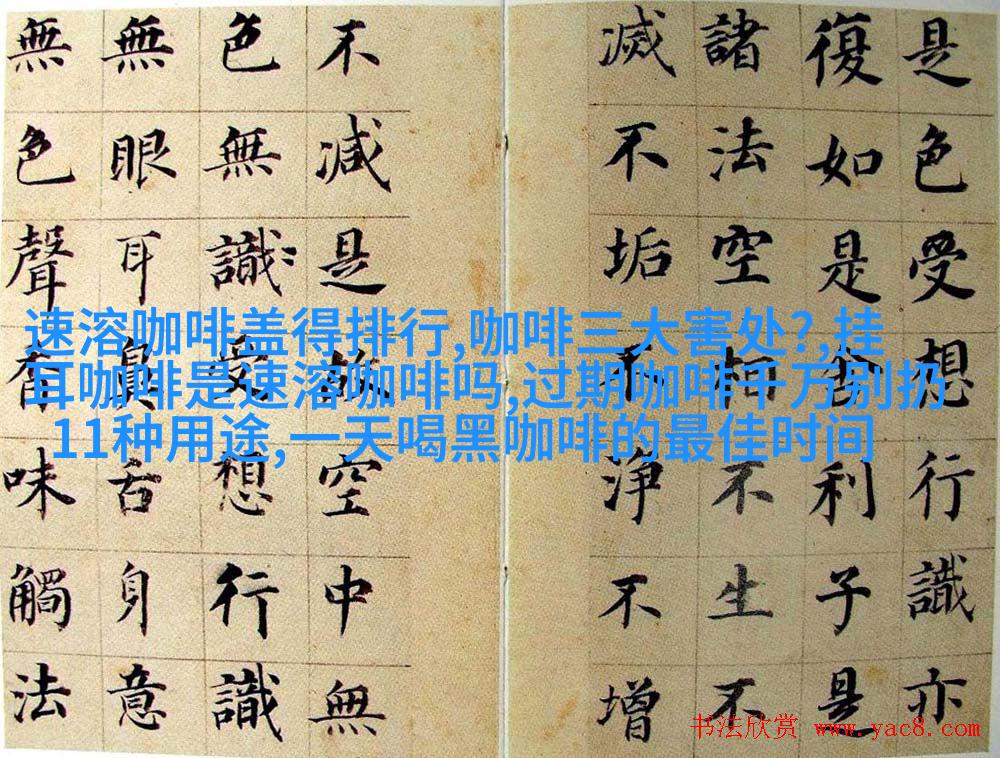 是色受想行識亦
復如是舍利子是
諸法空相不生不
滅不垢不淨不增
不減是故空中無
色無識受想行識
無眼耳鼻舌身意
無色聲香味觸法
速溶咖啡盖得排行,咖啡三大害处?,挂
耳咖啡是速溶咖啡吗,过期咖啡千万别扔
11种用途,一天喝黑咖啡的最佳时间
书法欣赏 www.yac8.com